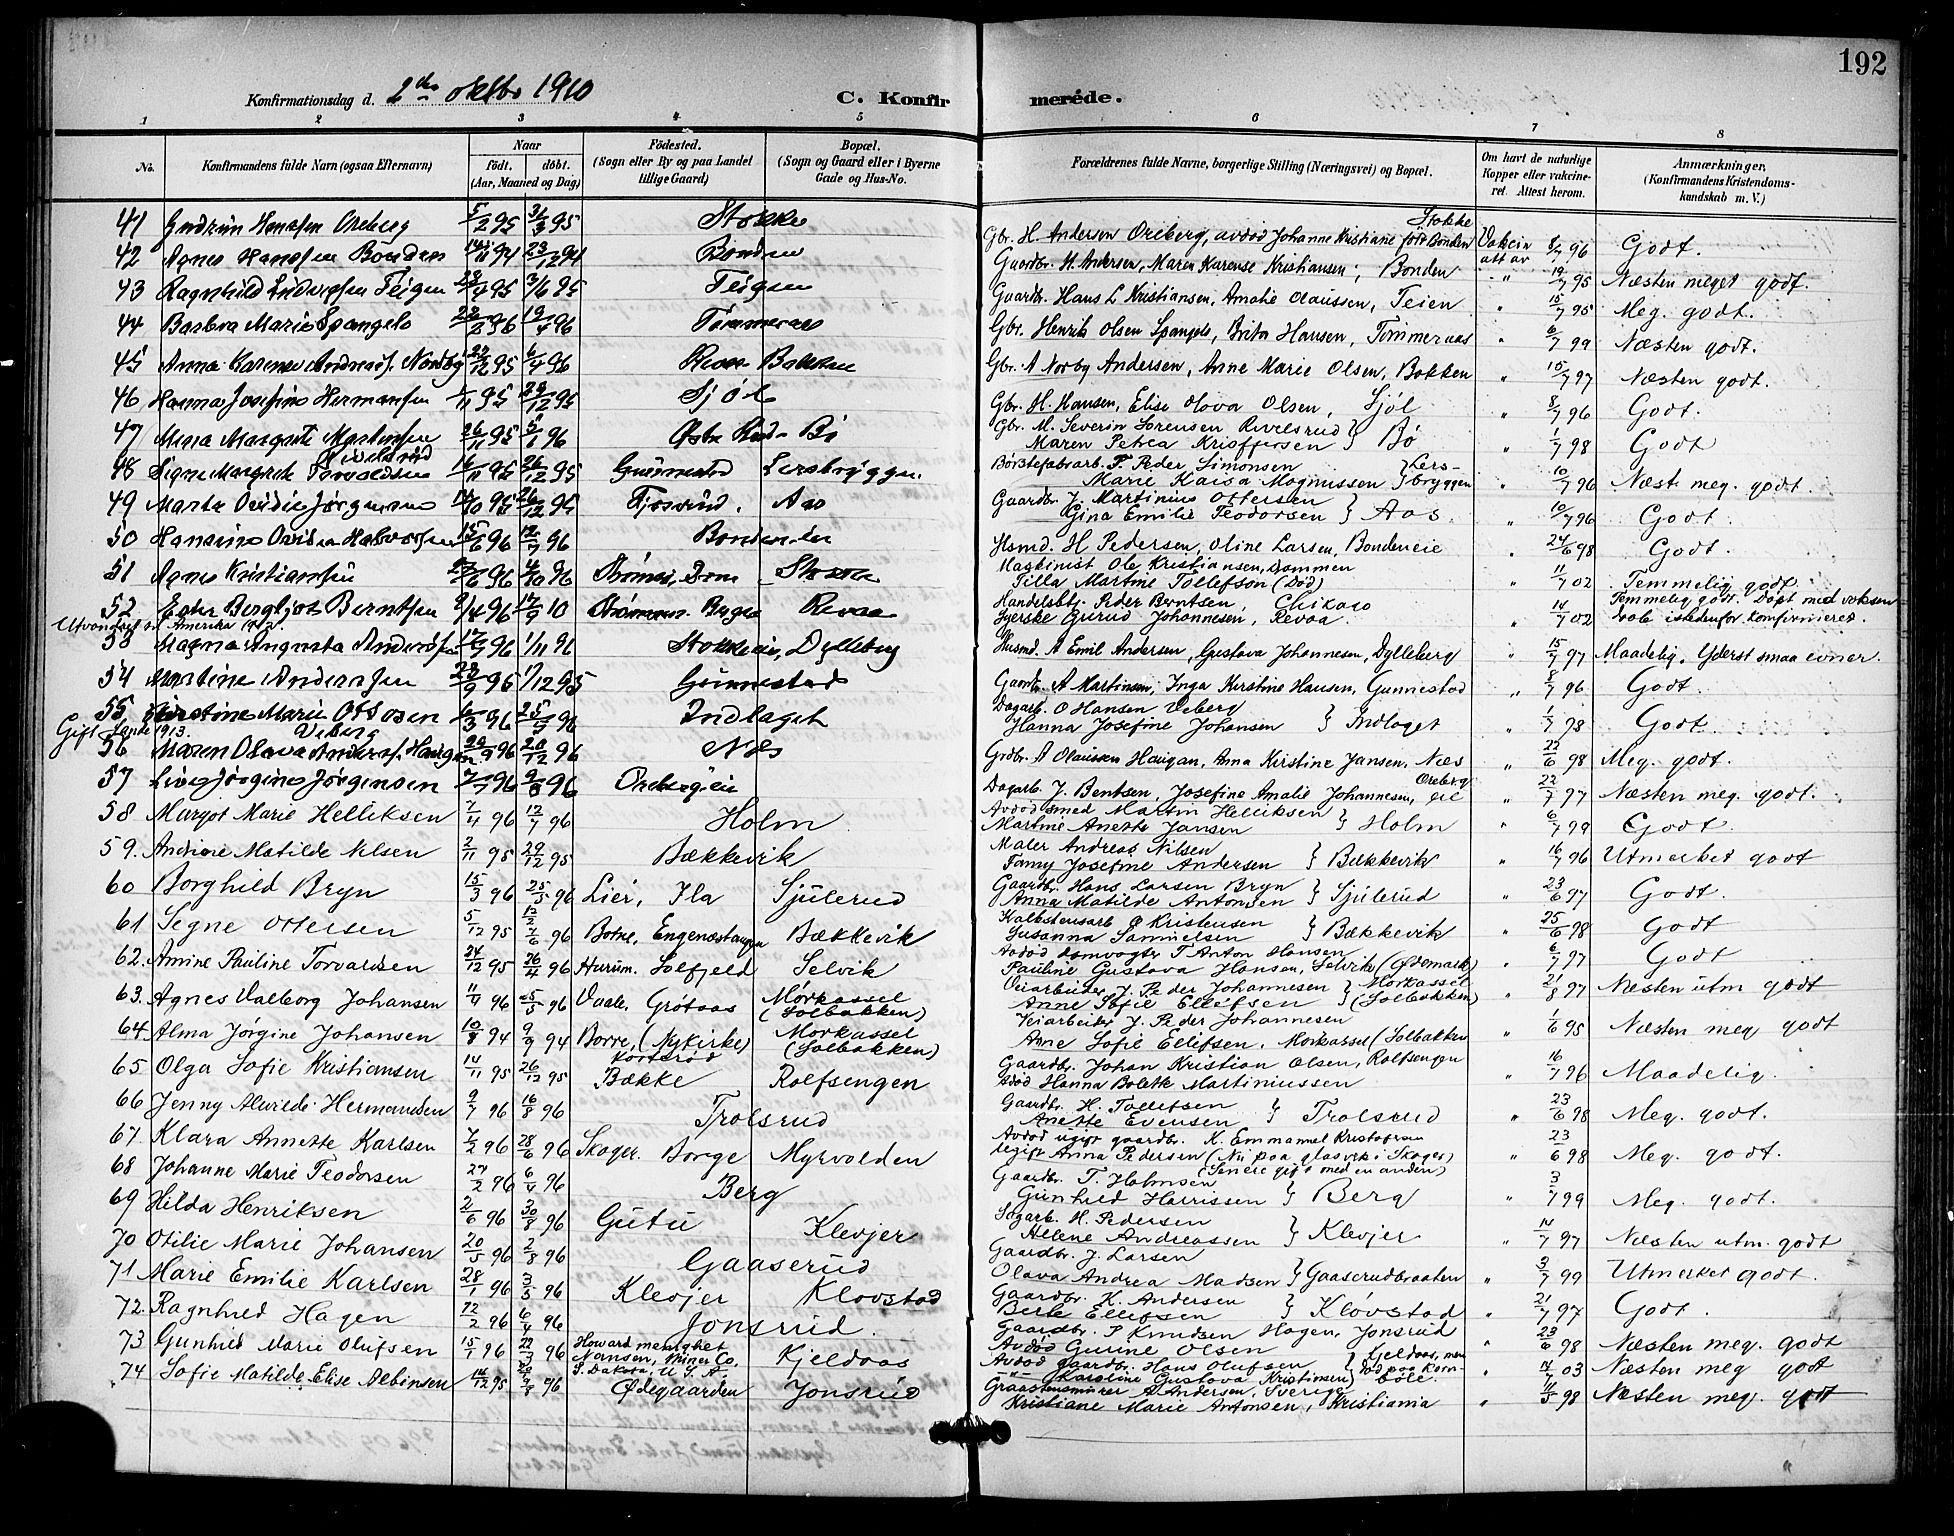 192
Konfirmationsdag d. 2den oktbr 1910
C. Konfirmerede.
1 2 3 4 5 6 7 8
No. Konfirmandens fulde Navn (ogsaa Efternavn) Naar født. døbt. (Aar, Maaned og Dag) Fødested. (Sogn eller By og paa Landet tillige Gaard) Bopæl. (Sogn og Gaard eller i Byerne Gade og Hus-No. Forældrenes fulde Navne, borgerlige Stilling (Næringsvei) og Bopæl. Om havt de naturlige Kopper eller vakcineret. Attest herom. Anmærkninger, (Konfirmandens Kristendomskundskab m. V.)
41 Gudrun Hansen Oreberg 5/2 95 31/3 95 Stokke Gbr. H. Andersen Oreberg, avdød Johanne Kristiane født Bonden Stokke Vakcin att av 8/7 96 Godt.
42 Agnes Hansen Bonden 23/12 94 Bonden Gaardbr. H. Andersen, Maren Karense Kristiansen, Bonden " 19/7 95 Næsten meget godt.
43 Ragnhild Teigen 23/4 95 3/6 95 Teigen Gaardbr. Hans L Kristiansen, Amalie Olaussen, Teien " 15/7 95 Meg. godt.
44 Barbra Marie Spangelo 23/2 96 19/4 96 Tømmeraas Gbr. Henrik Olsen Spangelo, Brita Hansen, Tømmeraas " 6/7 99 Næsten godt.
45 Anna Karense Andreas. Nordby 27/12 95 6/4 96 Bakken Gbr. A Norby Andersen, Anne Marie Olsen, Bakken " 15/7 97 Næsten godt.
46 Hanna Josefine Hermansen 1/11 95 29/12 95 Sjøl Gbr. H. Hansen, Elise Olova Olsen, Sjøl " 8/7 96 Godt.
47 Maria Margrete Martinsen Rivelsrød 26/11 95 5/1 96 Bø Gbr. M. Severin Sørensen Rivelsrud Maren Petrea Kristfersen } Bø " 1/7 98 Godt
48 Signe Margrete Torvaldsen 14/11 95 26/12 95 Gunnestad Lersbryggen Børstefabrarb. T. Peder Simonsen Marie Kaisa Magnussen } Lersbryggen " 10/7 96 Næst. meg. godt.
49 Marta Ovidie Jørgensen 14/10 95 26/12 95 Fjosrud. Aas Gaardbr. J. Martinius Ottersen Gina Emilie Teodorsen } Aas. " 10/7 96 Godt.
50 Hansine Halvorsen 15/6 96 12/7 96 Hsmd. H Pedersen, Oline Larsen, Bondeneie " 24/6 98 Godt.
51 Agnes Kristiansen 27/6 96 4/10 96 Maskinist Ole Kristiansen, Dammen Tilla Martine Tollefson (Død) " 11/7 02 Temmelig godt
52 Ester Bergljot Berntsen 9/4 96 17/9 10 Revaa Handelsbtj. Peder Berntsen, Chikago Syerske Gurud Johannesen, Revaa. " 14/7 02 Temmelig godt. Døpt med voksen daab istedenfor konfirmeret.
Utvandret til Amerika
53 Magna Augusta Andersen 17/7 96 1/11 96 Stokkeeie, Dylleberg Husmd. A Emil Andersen, Gustava Johannesen, Dylleberg " 15/7 97 Maadelig. Yderst smaa evner.
54 Martine Andersen 23/9 95 1/12 95 Gunnestad Gaardbr. A Martinsen, Inga Kirstine Hansen, Gunnestad " 8/7 96 Godt.
55 Kirstine Marie Ottosen Veberg 6/3 96 25/5 96 Indlaget Dagarb. O Hansen Veberg Hanna Josefine Johansen } Indlaget " 1/7 98 Godt.
Gift 1913.
56 Maren Olava Anders. Haugan 20/9 96 20/12 96 Næs Grdbr. A Olaussen Haugan, Anna Kirstine Jansen. Næs " 22/6 98 Meg. godt.
57 Jørgine Jørgensen 7/7 96 9/8 96 Orebergeie Dagarb. J. Bentsen, Josefine Amalie Johannesen, Oreberg eie " 22/7 97 Næsten meg. godt.
58 Margot Marie Helliksen 7/4 96 12/7 96 Holm Avdød smed Martin Helliksen Martine Anette Jansen } Holm " 6/7 99 Godt.
59. Andrine Matilde Nilsen 2/11 95 29/12 95 Bækkevik Maler Andreas Nilsen Fanny Josefine Andersen } Bækkevik " 16/7 96 Utmerket godt
60 Borghild Bryn 15/3 96 25/5 96 Lier, Ila Sjulerud Gaardbr. Hans Larsen Bryn Anna Matilde Antonsen } Sjulerud " 23/6 97 Godt.
61 Segne Ottersen 5/12 95 7/6 96 Botne, Engenæstangen Bækkevik Kalkstensarb O Kristensen Susanna Samuelsen } Bækkevik " 25/6 98 Godt
62. Amine Pauline Torvaldsen 24/12 95 26/4 96 Hurum. Solfjeld Selvik Avdød damvogter T Anton Hansen Pauline Gustava Hansen, Selvik (Ødemark) " 6/7 97 Godt
63. Agnes Valborg Johansen 11/4 96 25/5 96 Vaale. Grøtaas Mørkassel (Solbakken) Veiarbeider J. Peder Johannesen Anne Sofie Ellefsen } Mørkassel (Solbakken) " 21/8 97 Næsten utm godt
64. Alma Jørgine Johansen 10/8 94 9/9 94 Borre, (Nykirke) Mørkassel (Solbakken) Veiarbeider J. Peder Johannesen Anne Sofie Ellefsen. Mørkassel (Solbakken " 1/6 95 Næsten meg godt
65 Olga Sofie Kristiansen 14/11 95 26/12 95 Bække Rolfsengen Gaardbr. Johan Kristian Olsen, Rolfsengen Hanna Bolette Martiniussen " 16/7 96 Maadelig.
66 Jenny Alvilde Hermansen 9/7 96 16/8 96 Trolsrud Gaardbr. H. Tollefsen Anette Evensen } Trolsrud " 23/6 98 Meg. godt.
67. Klara Annette Karlsen 7/2 96 28/6 96 Skoger. Borge Myrvolden Avdød ugift gaardbr. K. Emmanuel Kristofersen Ugift Anna Pedersen (Nu paa glasverk i Skoger) (Senere gift med en anden) " 23/6 98 Meg. godt.
68 Johanne Marie Teodorsen 24/2 96 6/4 96 Berg Gaardbr. T. Holmsen Gunhild Harrissen } Berg " 3/7 99 Meg. godt.
69 Hilda Henriksen 2/6 96 30/8 96 Gutu Klevjer Sagarb. H. Pedersen Helene Andreassen } Klevjer " 14/7 97 Næsten utm. godt
70 Otilie Marie Johansen 20/5 96 2/8 96 Gaaserud Gaardbr. J. Larsen Olava Andrea Madsen } Gaaserudbraaten " 3/7 99 Utmerket godt.
71 Marie Emilie Karlsen 28/1 96 3/5 96 Klevjer Klovstad Gaardbr. K. Andersen Berte Ellefsen } Kløvstad " 21/7 97 Godt.
72. Ragnhild Hagen 12/2 96 6/4 96 Jonsrud. Gaardbr. P Knudsen Hagen, Jonsrud Avdød Gunne Olsen " 23/6 98 Næsten meg. godt
73 Gunhild Marie Olufsen 15/1 96 22/3 96 Howard menighet Nansen, Miner Co. S. Dakota U. S. A. Kjeldaas Avdød gaardbr. Hans Olufsen Karoline Gustava Kristinsen } Kjeldaas, men " 14/7 03 Næsten meg godt
74 Sofie Matilde Elise Albinsen 14/12 95 96 Ødegaarden Jonsrud Graastensminer A Andersen, Sverige Kristiane Marie Antonsen, Kristiania " 14/5 98 Næsten meg. godt